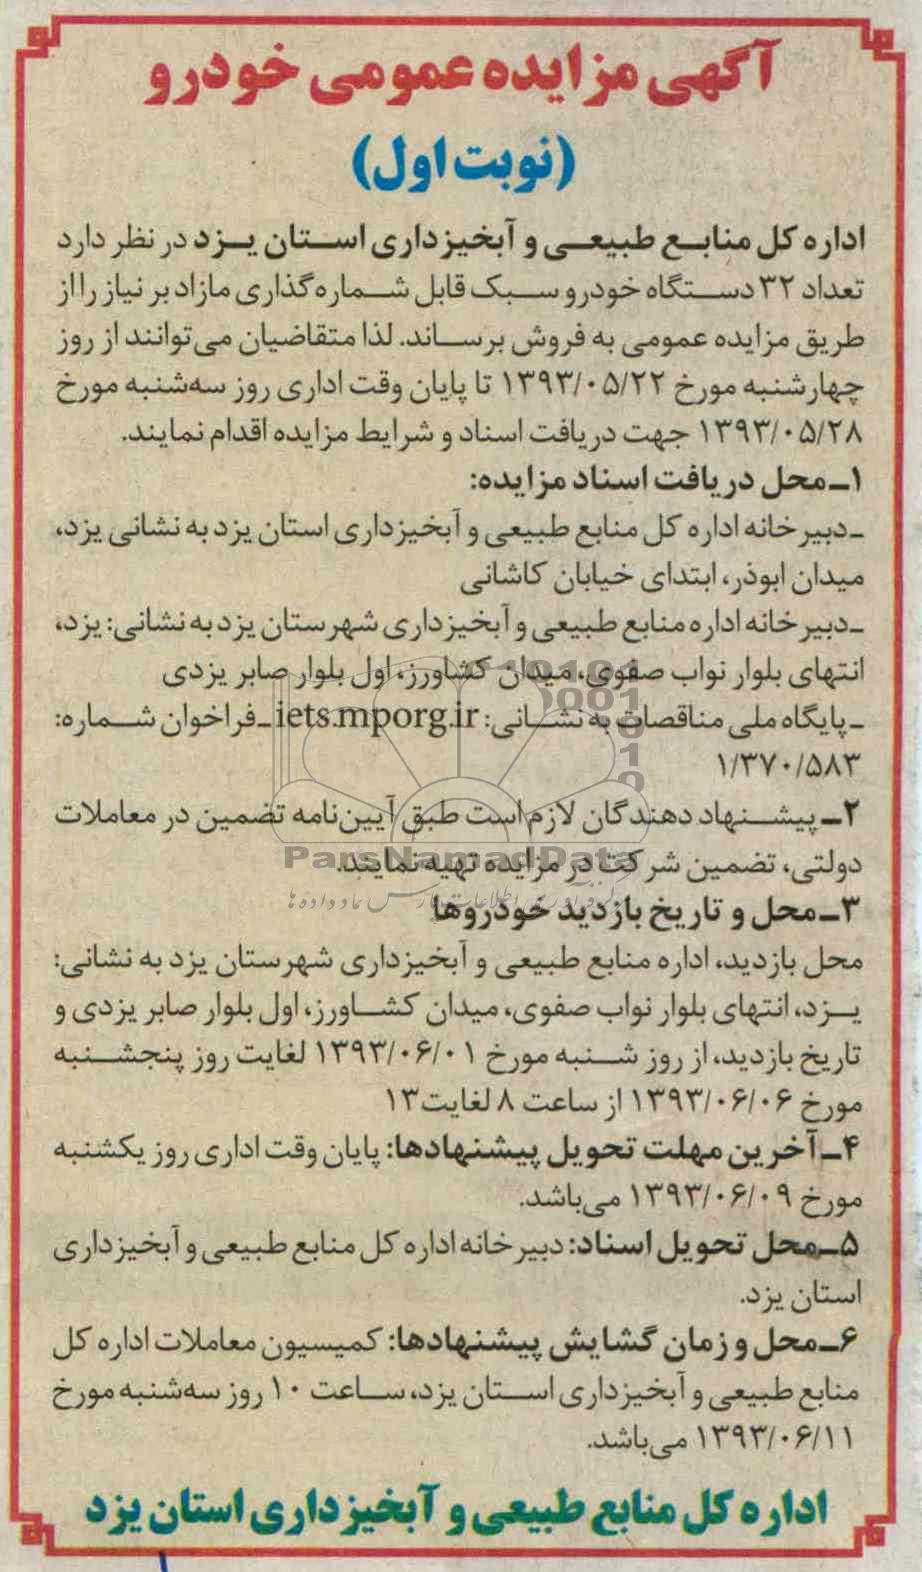 آگهی مزایده عمومی خودرو
(نوبت اول)
اداره کل منابع طبیعی و آبخیزداری استان یزد در نظر دارد
تعداد ۳۲ دستگاه خودرو سبک قابل شماره‌گذاری مازاد بر نیاز را از
طریق مزایده عمومی به فروش برساند. لذا متقاضیان می‌توانند از روز
چهارشنبه مورخ ۱۳۹۳/۰۵/۲۲ تا پایان وقت اداری روز سه‌شنبه مورخ
۱۳۹۳/۰۵/۲۸ جهت دریافت اسناد و شرایط مزایده اقدام نمایند.
۱ـ محل دریافت اسناد مزایده:
ـ دبیرخانه اداره کل منابع طبیعی و آبخیزداری استان یزد به نشانی یزد،
میدان ابوذر، ابتدای خیابان کاشانی
ـ دبیرخانه اداره منابع طبیعی و آبخیزداری شهرستان یزد به نشانی: یزد،
انتهای بلوار نواب صفوی، میدان کشاورز، اول بلوار صابر یزدی
ـ پایگاه ملی مناقصات به نشانی: iets.mporg.ir ـ فراخوان شماره:
۱/۳۷۰/۵۸۳
۲ـ پیشنهاد دهندگان لازم است طبق آیین‌نامه تضمین در معاملات
دولتی، تضمین شرکت در مزایده تهیه نمایند.
ParsNamadData
۳ـ محل و تاریخ بازدید خودروها
محل بازدید، اداره منابع طبیعی و آبخیزداری شهرستان یزد به نشانی:
یزد، انتهای بلوار نواب صفوی، میدان کشاورز، اول بلوار صابر یزدی و
تاریخ بازدید، از روز شنبه مورخ ۱۳۹۳/۰۶/۰۱ لغایت روز پنجشنبه
مورخ ۱۳۹۳/۰۶/۰۶ از ساعت ۸ لغایت ۱۳
۴ـ آخرین مهلت تحویل پیشنهادها: پایان وقت اداری روز یکشنبه
مورخ ۱۳۹۳/۰۶/۰۹ می‌باشد.
۵ـ محل تحویل اسناد: دبیرخانه اداره کل منابع طبیعی و آبخیزداری
استان یزد.
۶ـ محل و زمان گشایش پیشنهادها: کمیسیون معاملات اداره کل
منابع طبیعی و آبخیزداری استان یزد، ساعت ۱۰ روز سه‌شنبه مورخ
۱۳۹۳/۰۶/۱۱ می‌باشد.
اداره کل منابع طبیعی و آبخیزداری استان یزد